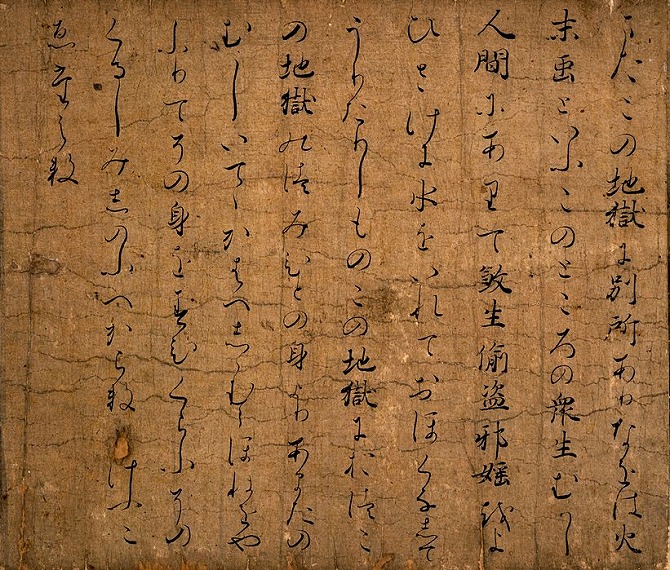 またこの地獄に別所ありなをは火
末虫といふこのところの衆生むかし
人間にありて殺生偸盗邪婬をよ
ひさけに水をいれておほくなして
うりたりしものこの地獄におつこ
の地獄のつみひとの身よりあまたの
むしいてゝかはへしゝむらほねをや
ふりてその身をすひくらふその
くるしみしのふへからす けふこ
ゑたえす